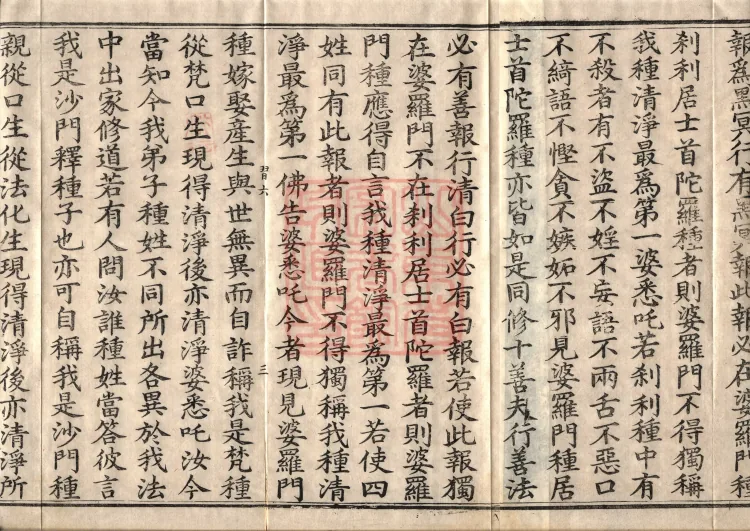 報為黑冥行有黑冥報此報必在婆羅門種
刹利居士首陀羅種者則婆羅門不得獨稱
我種清淨最為第一婆悉吒若刹利種中有
不殺者有不盜不婬不妄語不兩舌不惡口
不綺語不慳貪不嫉妬不邪見婆羅門種居
士首陀羅種亦皆如是同修十善夫行善法
必有善報行清白行必有白報若使此報獨
在婆羅門不在刹利居士首陀羅者則婆羅
門種應得自言我種清淨最為第一若使四
姓同有此報者則婆羅門不得獨稱我種清
淨最為第一佛告婆悉吒今者現見婆羅門
種嫁娶產生與世無異而自詐稱我是梵種
從梵口生現得清淨後亦清淨婆悉吒汝今
當知今我弟子種姓不同所出各異於我法
中出家修道若有人問汝誰種姓當答彼言
我是沙門釋種子也亦可自稱我是沙門種
親從口生從法化生現得清淨後亦清淨所